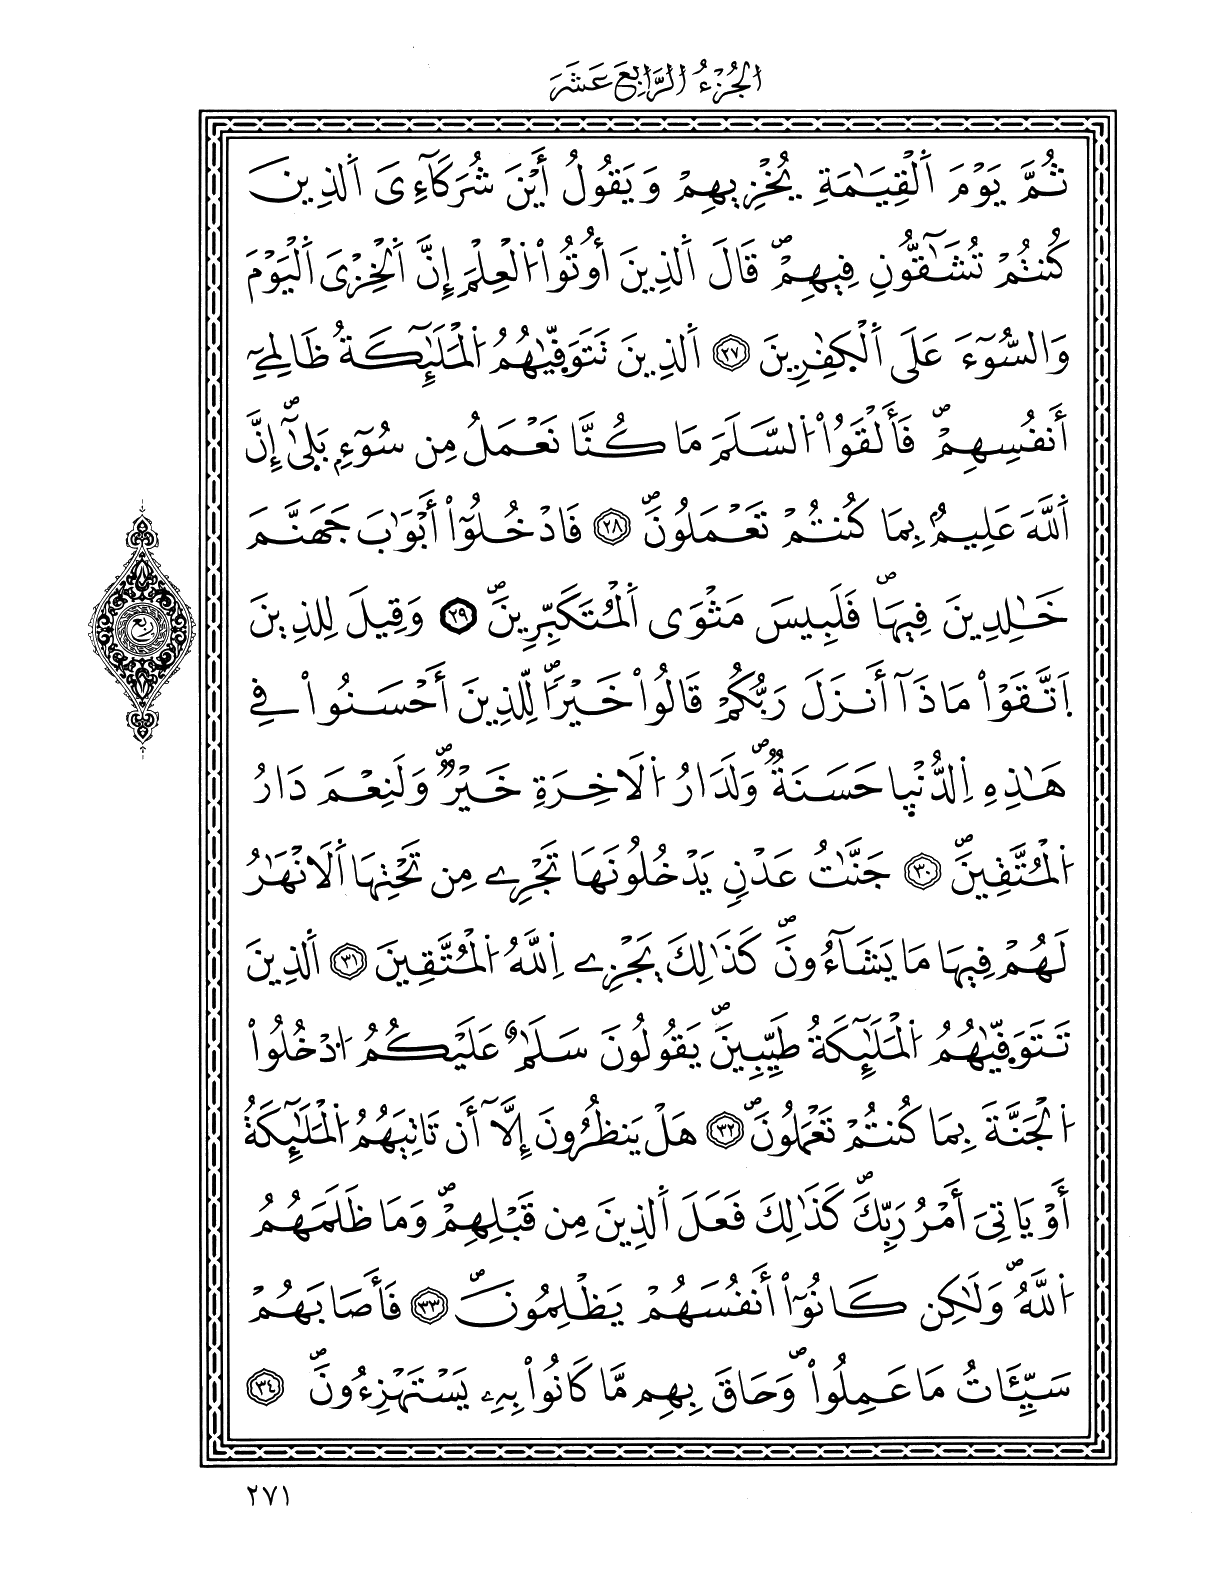 الجُزْءُ الرَّابِعَ عَشَرَ
ثُمَّ يَوْمَ اَ۬لْقِيَٰمَةِ يُخْزِيهِمْ وَيَقُولُ أَيْنَ شُرَكَآءِيَ اَ۬لذِينَ
كُنتُمْ تُشَٰٓقُّونِ فِيهِمْۖ قَالَ اَ۬لذِينَ أُوتُواْ اُ۬لْعِلْمَ إِنَّ اَ۬لْخِزْيَ اَ۬لْيَوْمَ
وَالسُّوٓءَ عَلَى اَ۬لْكٰ۪فِرِينَ ٢٧ اَ۬لذِينَ تَتَوَفّ۪يٰهُمُ اُ۬لْمَلَٰٓئِكَةُ ظَالِمِےٓ
أَنفُسِهِمْۖ فَأَلْقَوُاْ اُ۬لسَّلَمَ مَا كُنَّا نَعْمَلُ مِن سُوٓءِۢۖ بَل۪ىٰٓۖ إِنَّ
اَ۬للَّهَ عَلِيمُۢ بِمَا كُنتُمْ تَعْمَلُونَۖ ٢٨ فَادْخُلُوٓاْ أَبْوَٰبَ جَهَنَّمَ
خَٰلِدِينَ فِيهَاۖ فَلَبِيسَ مَثْوَى اَ۬لْمُتَكَبِّرِينَۖ ٢٩ وَقِيلَ لِلذِينَ
اَ۪تَّقَوْاْ مَاذَآ أَنزَلَ رَبُّكُمْ قَالُواْ خَيْراٗۖ لِّلذِينَ أَحْسَنُواْ فِے
هَٰذِهِ اِ۬لدُّنْي۪ا حَسَنَةٞۖ وَلَدَارُ اُ۬لَاخِرَةِ خَيْرٞۖ وَلَنِعْمَ دَارُ
اُ۬لْمُتَّقِينَۖ ٣٠ جَنَّٰتُ عَدْنٖ يَدْخُلُونَهَا تَجْرِے مِن تَحْتِهَا اَ۬لَانْهَٰرُ
لَهُمْ فِيهَا مَا يَشَآءُونَۖ كَذَٰلِكَ يَجْزِے اِ۬للَّهُ اُ۬لْمُتَّقِينَ ٣١ اَ۬لذِينَ
تَتَوَفّ۪يٰهُمُ اُ۬لْمَلَٰٓئِكَةُ طَيِّبِينَۖ يَقُولُونَ سَلَٰمٌ عَلَيْكُمُ اُ۟دْخُلُواْ
اُ۬لْجَنَّةَ بِمَا كُنتُمْ تَعْمَلُونَۖ ٣٢ هَلْ يَنظُرُونَ إِلَّآ أَن تَاتِيَهُمُ اُ۬لْمَلَٰٓئِكَةُ
أَوْ يَاتِيَ أَمْرُ رَبِّكَۖ كَذَٰلِكَ فَعَلَ اَ۬لذِينَ مِن قَبْلِهِمْۖ وَمَا ظَلَمَهُمُ
اُ۬للَّهُۖ وَلَٰكِن كَانُوٓاْ أَنفُسَهُمْ يَظْلِمُونَۖ ٣٣ فَأَصَابَهُمْ
سَيِّـَٔاتُ مَا عَمِلُواْۖ وَحَاقَ بِهِم مَّا كَانُواْ بِهِۦ يَسْتَهْزِءُونَۖ ٣٤
ربع
٢٧١